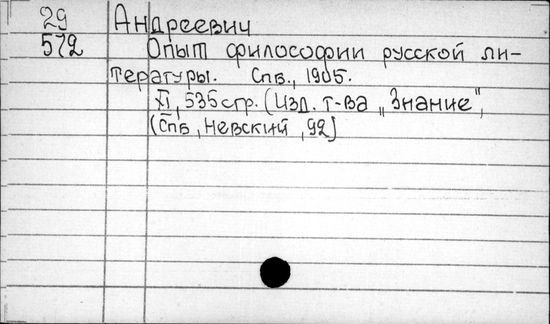 29 Андреевич
572 Опыт философии русской ли-
тературы. Спб., 1905.
XI, 535 стр. (Изд. т-ва „Знание",
(Спб, Невский, 92)